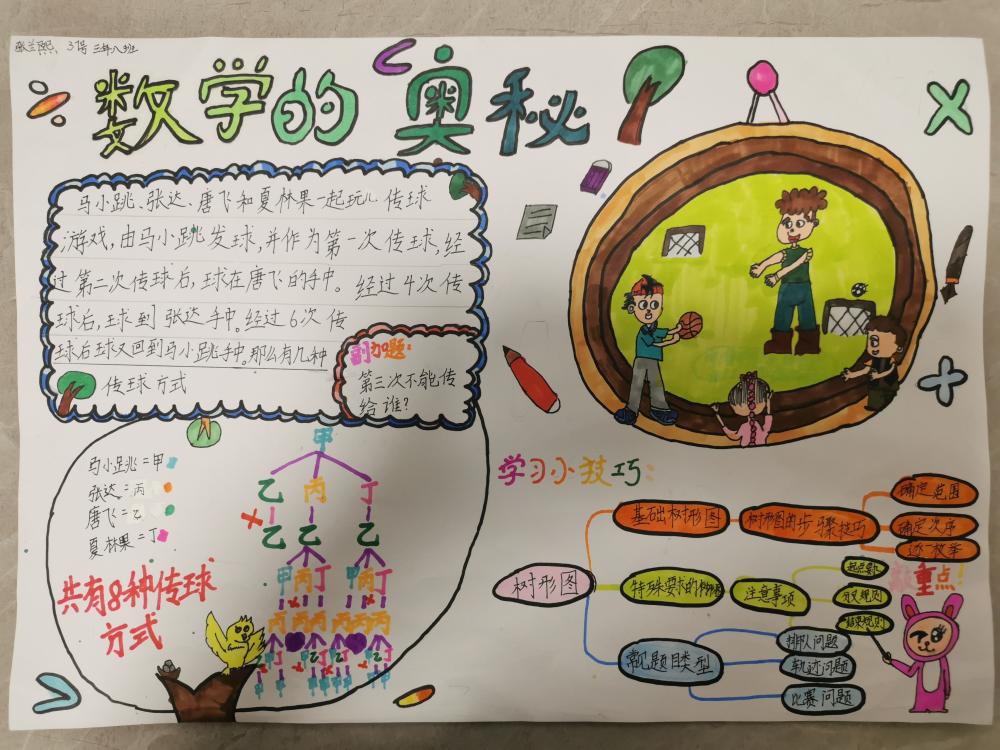 张兰熙 3号 三年八班
数学的奥秘
马小跳、张达、唐飞和夏林果一起玩儿传球
游戏,由马小跳发球,并作为第一次传球,经
过第二次传球后,球在唐飞的手中。经过4次传
球后,球到张达手中。经过6次传
球后球又回到马小跳手中。那么有几种
传球方式
副加题:
第三次不能传
给谁?
马小跳=甲
张达=丙
唐飞=乙
夏林果=丁
共有8种传球
方式
甲
乙 丙 丁
乙 乙
甲 丙 丁 甲 丙 丁
丙 丙 丙 丙
学习小技巧:
树形图
基础树形图
树形图的步骤技巧
确定范围
确定次序
逐枚举
特殊要求的树形图
注意事项
起点要求
分叉规则
结果规则
敲重点!
常见题目类型
排队问题
轨迹问题
比赛问题